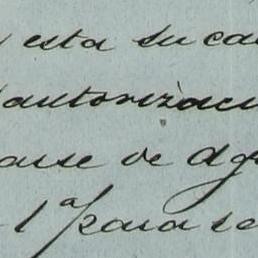 y esta su ca
autorizaci
arse de Ag
1ª para se